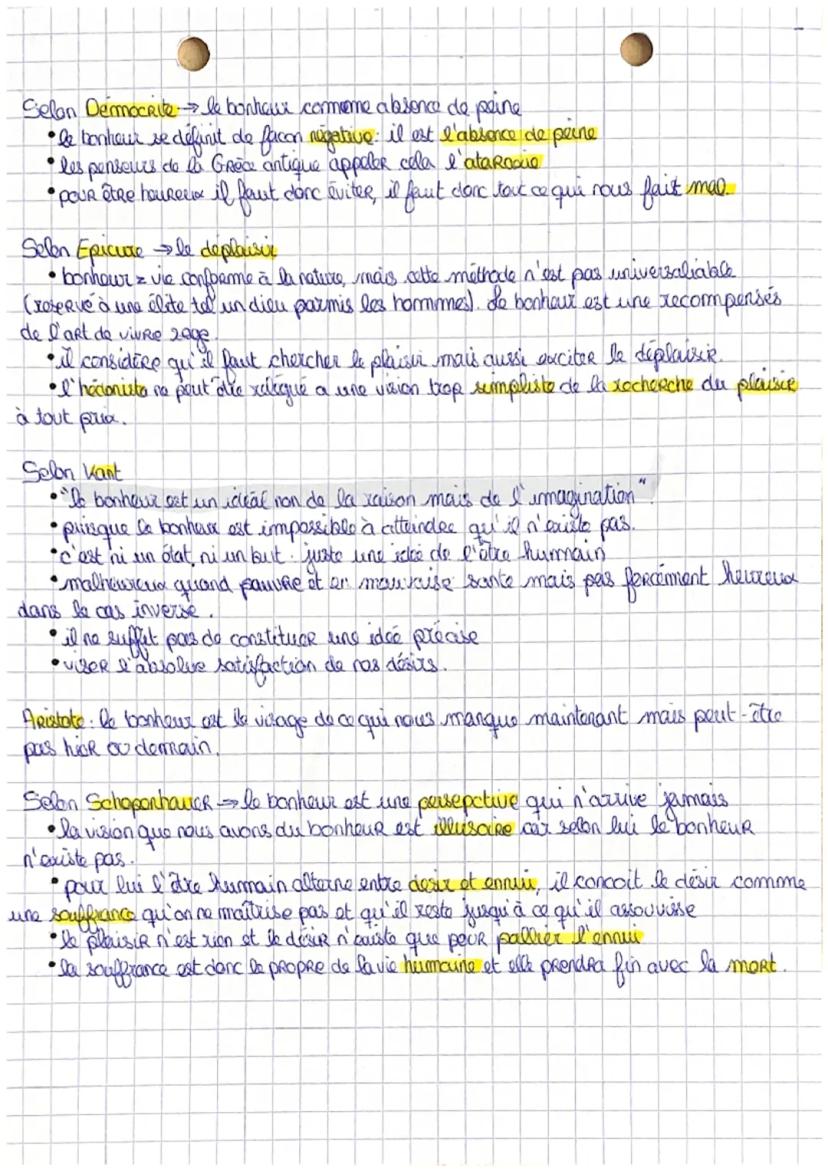 Selon Démocrite → le bonheur commeme absence de peine
• le bonheur se définit de façon négative : il est l'absence de peine
• les penseurs de la Grèce antique appeler cela l'ataraxie
• pour être heureux il faut donc éviter, il faut donc tout ce qui nous fait mal.
Selon Epicure → le déplaisir
• bonheur = vie conforme à la nature, mais cette méthode n'est pas universaliable
(réservé à une élite tel un dieu parmis les hommmes). Le bonheur est une recompensés
de l'art de vivre sage.
• il considère qu'il faut chercher le plaisir mais aussi exciter le déplaisir.
• l'hédoniste ne peut être relégué a une vision trop simpliste de la recherche du plaisir
à tout prix.
Selon Kant
• "le bonheur est un idéal non de la raison mais de l'imagination".
• puisque le bonheur est impossible à atteindre qu'il n'existe pas.
• c'est ni un état, ni un but. juste une idée de l'être humain
• malheureux quand pauvre et en mauvaise sante mais pas forcément heureux
dans le cas inverse.
• il ne suffit pas de constituer une idée précise
• viser l'absolue satisfaction de nos désirs.
Aristote : le bonheur est le visage de ce qui nous manque maintenant mais peut-être
pas hier ou demain.
Selon Schopenhauer → le bonheur est une persepctive qui n'arrive jamais
• la vision que nous avons du bonheur est illusoire car selon lui le bonheur
n'existe pas.
• pour lui l'être humain alterne entre desir et ennui, il concoit le désir comme
une souffrance qu'on ne maîtrise pas et qu'il reste jusqu'à ce qu'il assouvisse
• le plaisir n'est rien et le désir n'existe que pour pallier l'ennui
• la souffrance est donc le propre de la vie humaine et elle prendra fin avec la mort.